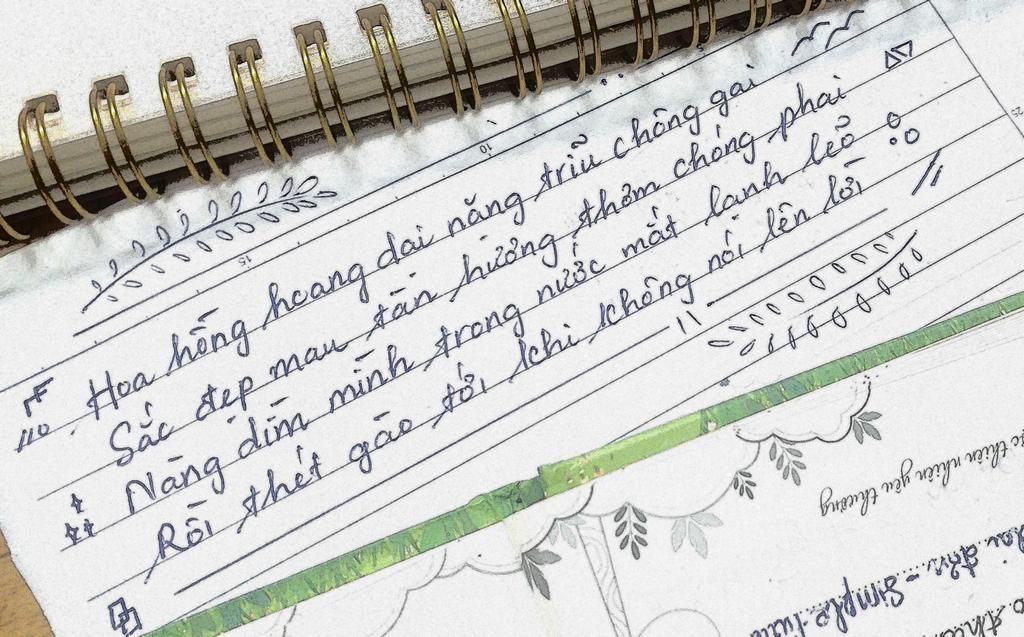 Hoa hồng hoang dại nặng trĩu chông gai
Sắc đẹp mau tàn hương thơm chóng phai
Nàng dìm mình trong nước mắt lạnh lẽo
Rồi thét gào tới khi không nói lên lời
thiên nhiên yêu thương
đơn - Simple
15
10
25